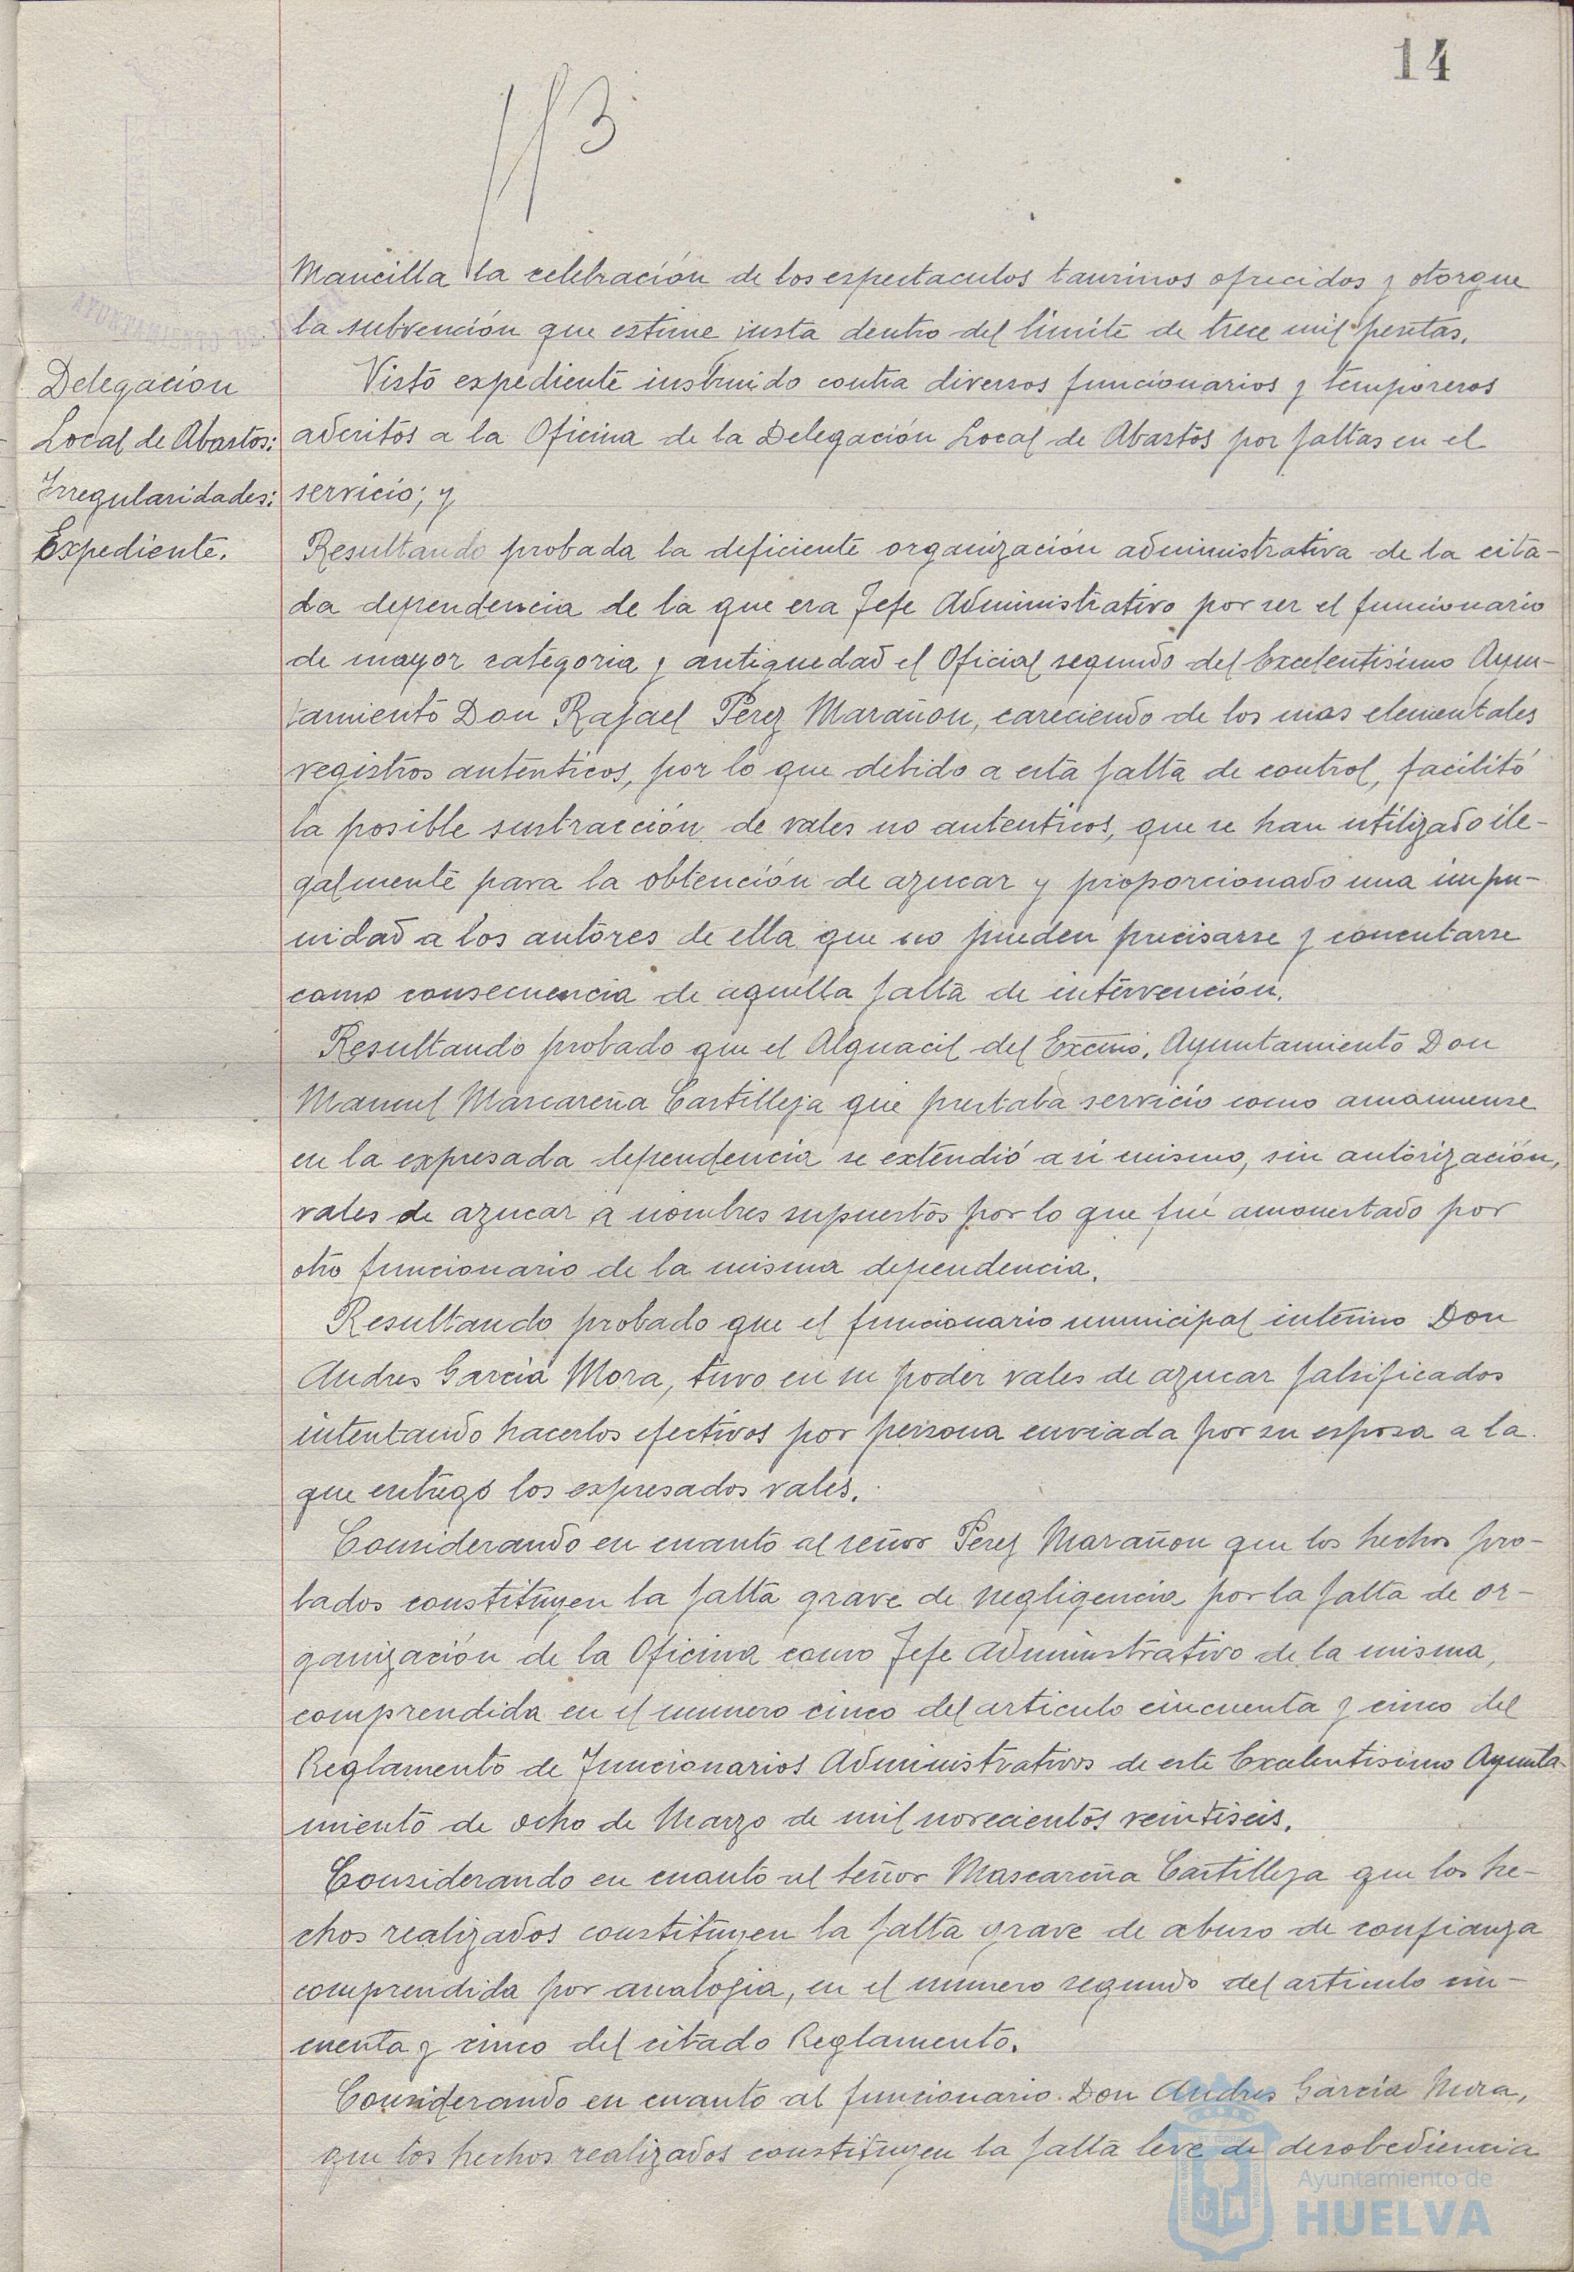 14
113
Mancilla la celebración de los espectaculos taurinos ofrecidos y otorgue
la subvención que estime justa dentro del limite de trece mil pesetas.
Delegación
Local de Abastos:
Irregularidades:
Expediente.
Visto expediente instruido contra diversos funcionarios y temporeros
adcritos a la Oficina de la Delegación Local de Abastos por faltas en el
servicio; y
Resultando probada la deficiente organización administrativa de la cita-
da dependencia de la que era Jefe Administrativo por ser el funcionario
de mayor categoria y antiguedad el Oficial segundo del Excelentisimo Ayun-
tamiento Don Rafael Perez Marañon, careciendo de los mas elementales
registros autenticos, por lo que debido a esta falta de control, facilitó
la posible sustracción de vales no autenticos, que se han utilizado ile-
galmente para la obtención de azucar y proporcionado una impu-
nidad a los autores de ella que no pueden precisarse y
como consecuencia de aquella falta de intervención.
Resultando probado que el Alguacil del Excmo. Ayuntamiento Don
Manuel Mascareña Castilleja que prestaba servicio como amanuense
en la expresada dependencia se extendió a si mismo, sin autorización,
vales de azucar a nombres supuestos por lo que fué amonestado por
otro funcionario de la misma dependencia.
Resultando probado que el funcionario municipal interino Don
Andres García Mora, tuvo en su poder vales de azucar falsificados
intentando hacerlos efectivos por persona enviada por su esposa a la
que entregó los expresados vales.
Considerando en cuanto al señor Perez Marañon que los hechos pro-
bados constituyen la falta grave de negligencia por la falta de or-
ganización de la Oficina como Jefe Administrativo de la misma,
comprendida en el numero cinco del articulo cincuenta y cinco del
Reglamento de Funcionarios Administrativos de este Excelentisimo Ayunta-
miento de ocho de Marzo de mil novecientos veintiseis.
Considerando en cuanto al señor Mascareña Castilleja que los he-
chos realizados constituyen la falta grave de abuso de confianza
comprendida por analogia, en el numero segundo del articulo cin-
cuenta y cinco del citado Reglamento.
Considerando en cuanto al funcionario Don Andres García Mora,
que los hechos realizados constituyen la falta leve de desobediencia
Ayuntamiento de
HUELVA